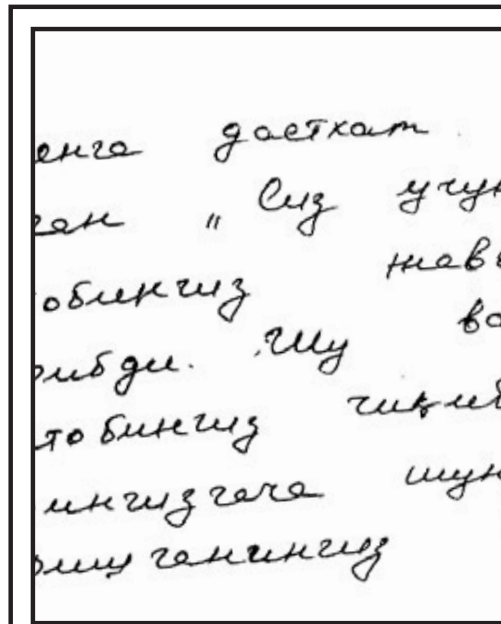 енга дастхат
ган „ Сиз учун
обингиз жавъ
рибди. Шу ва
тобингиз чиқиб
ингизгача шун
ришганингиз